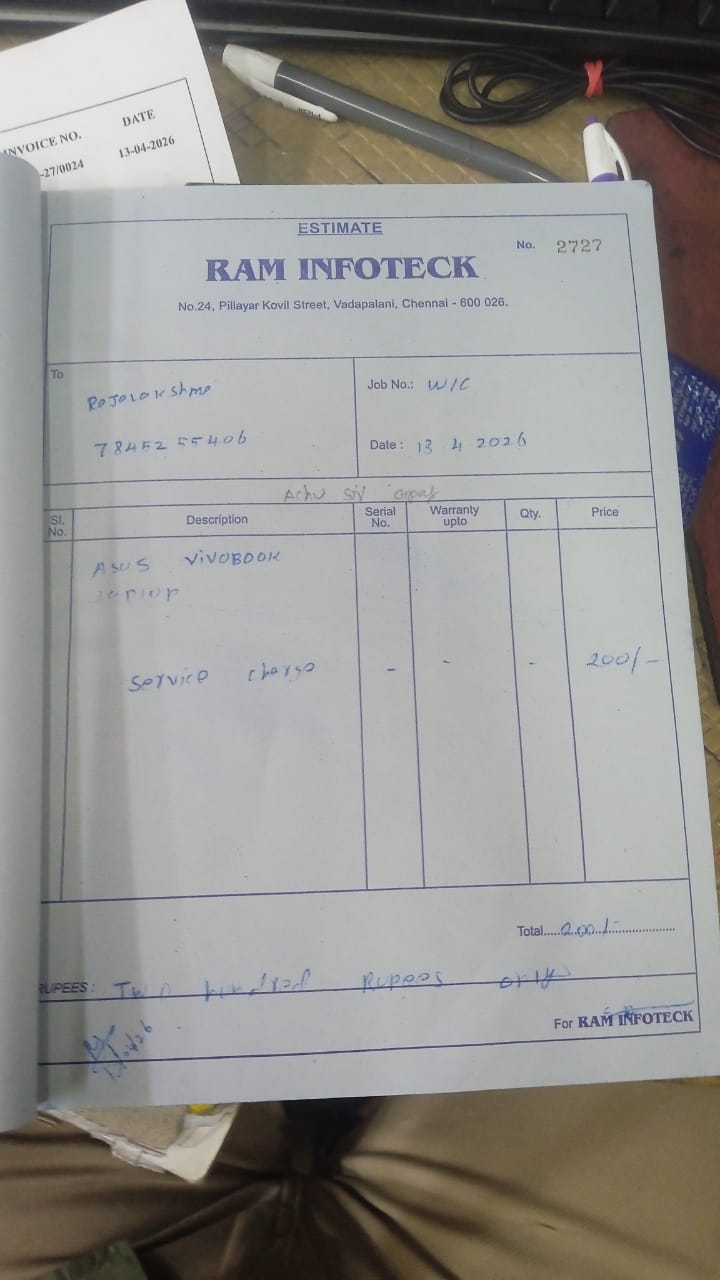 INVOICE NO.
DATE
-27/0024
13-04-2026
ESTIMATE
No. 2727
RAM INFOTECK
No.24, Pillayar Kovil Street, Vadapalani, Chennai - 600 026.
To
Rajalakshmi
78452 55406
Job No.: W/C
Date : 13 4 2026
Sl. No.
Description
Serial No.
Warranty upto
Qty.
Price
ASUS VIVOBOOK
Laptop
Service charge - - - 200/-
Total.....200/-
RUPEES : Two hundred Rupees only
For RAM INFOTECK